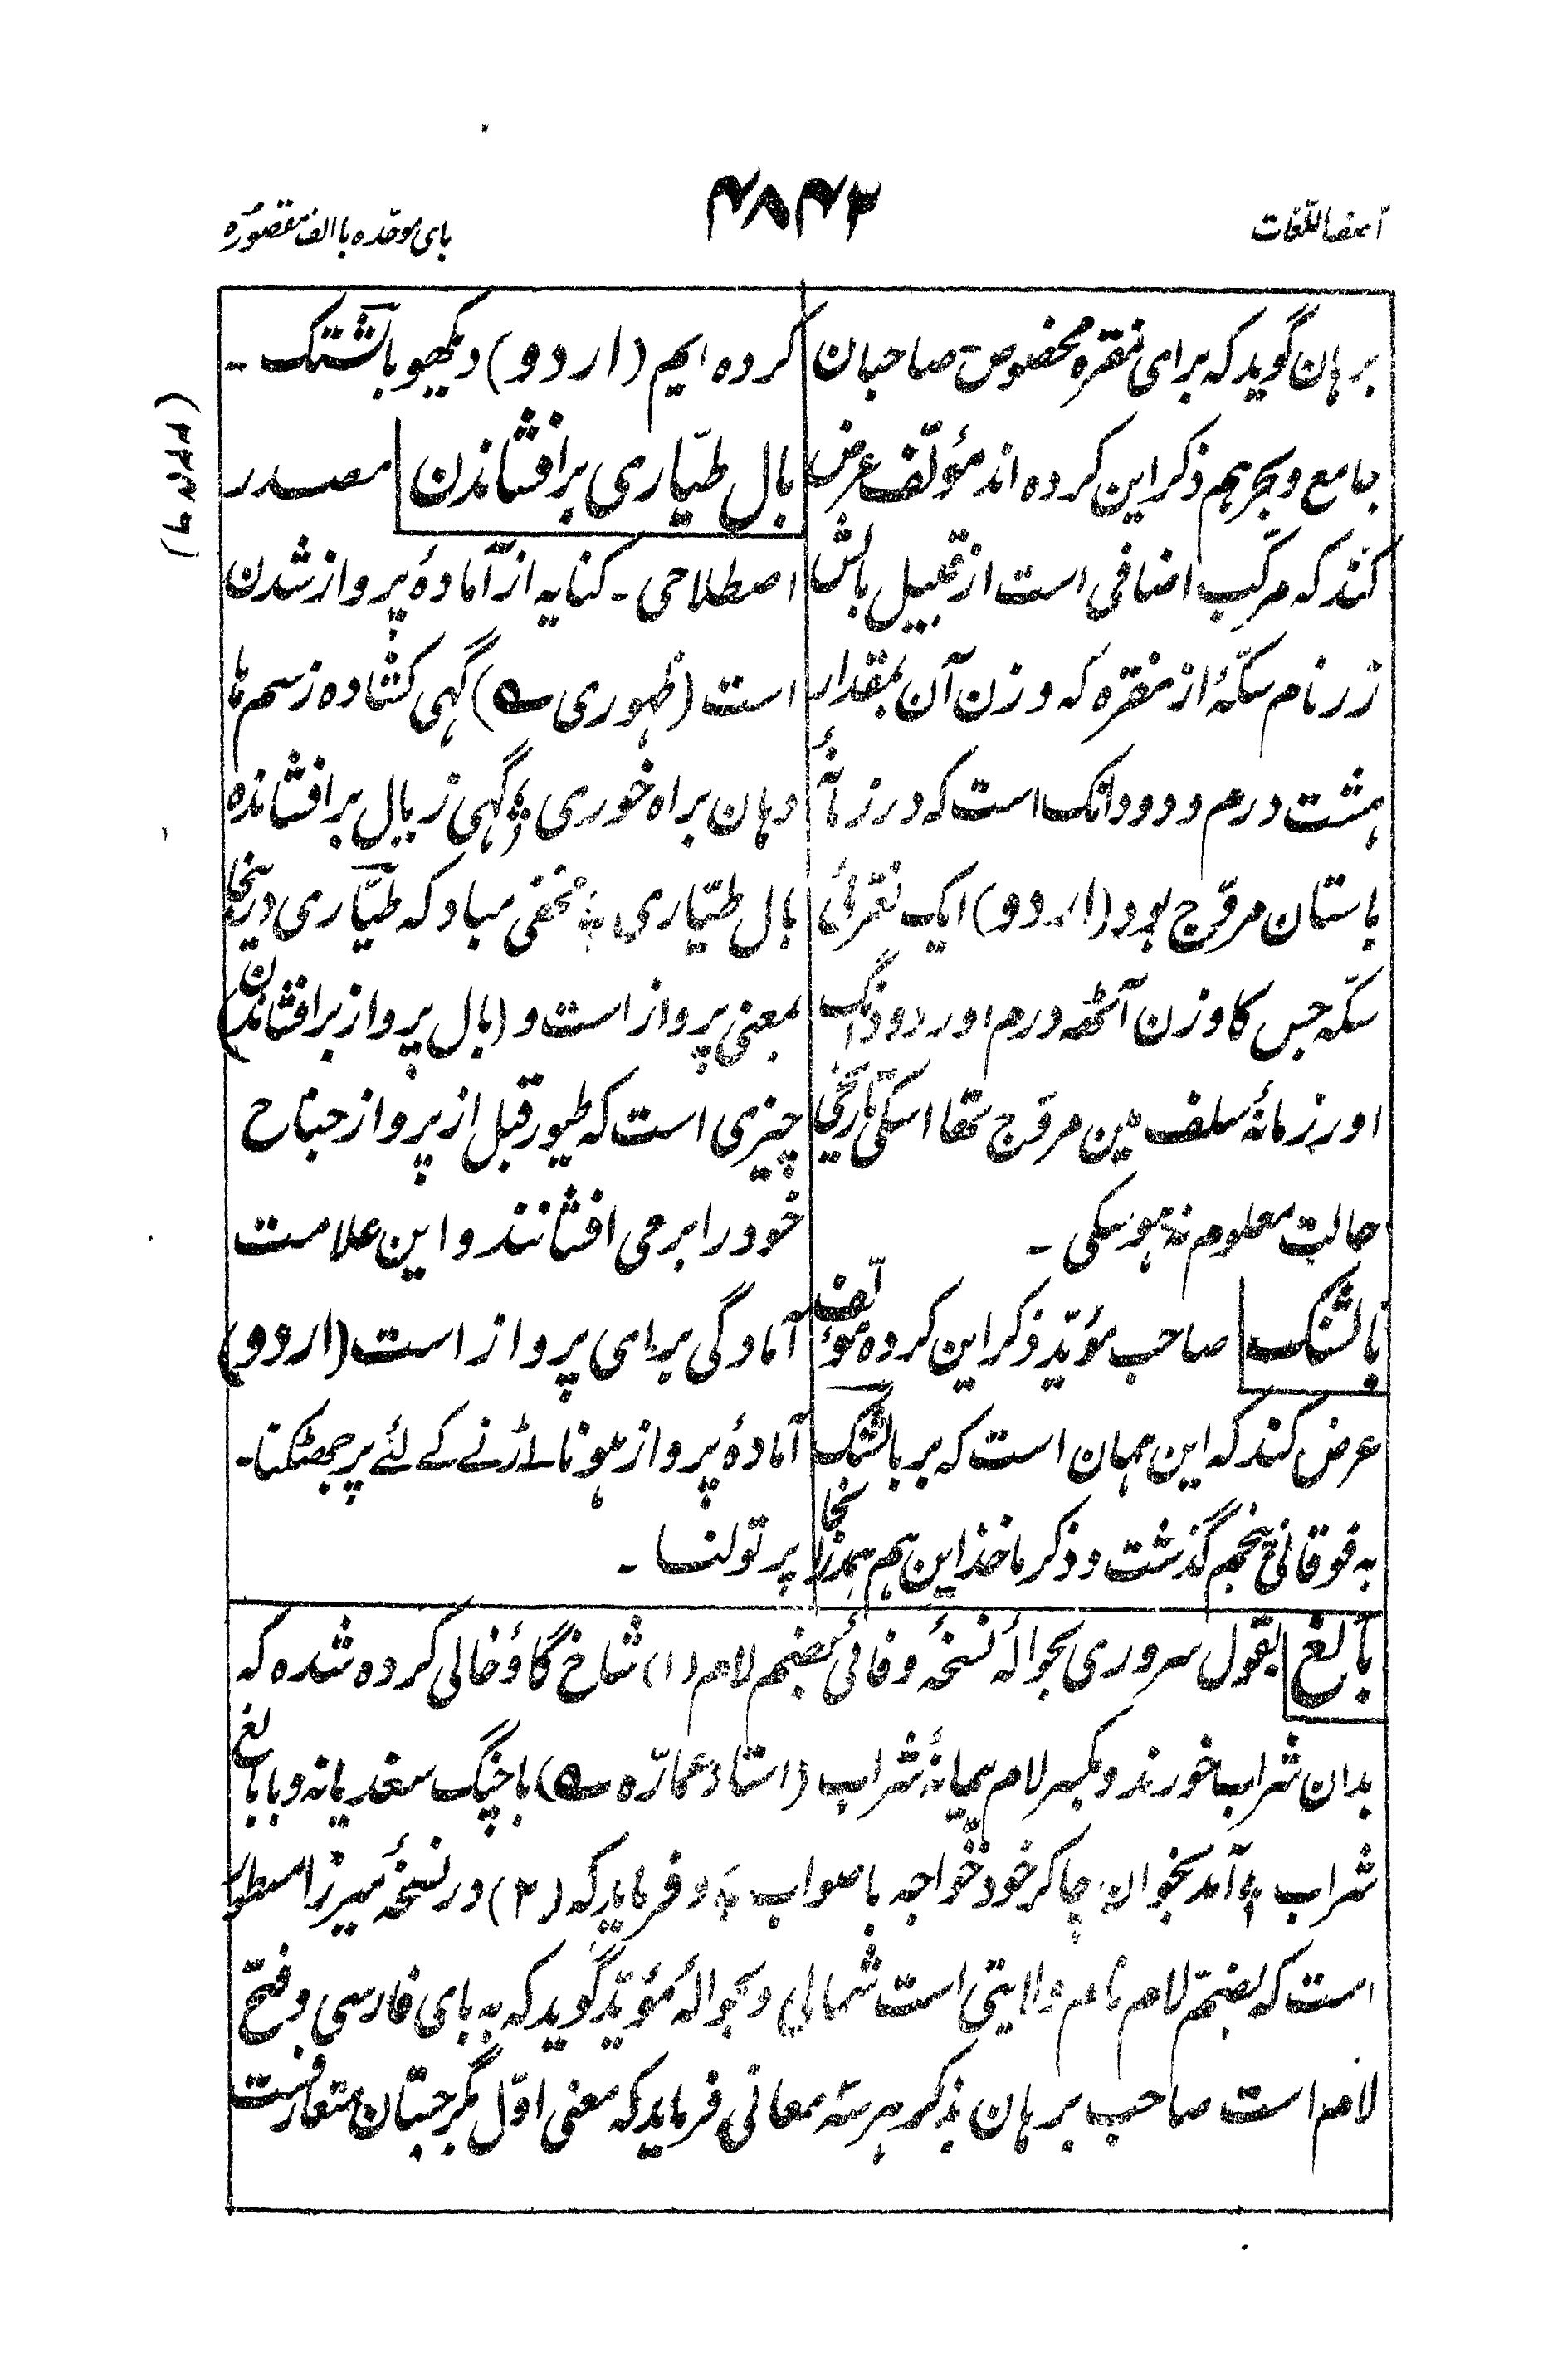 آصف اللّغات
۴۸۴۲
بای موحّده با الف مقصوره
برہان گوید کہ برای نقرہ مخصوص صاحبان
جامع و بحر ہم ذکر این کردہ اند مؤلّف عرض
کند کہ مرکّب اضافی است از قبیل بالش
زر نام سکّۂ از نقرہ کہ وزن آن بمقدار
ہشت درم و دو دانک است کہ در زمانۂ
باستان مروّج بود (اردو) ایک نقرئی
سکّہ جس کا وزن آٹھہ درم اور دو دانگ
اور زمانۂ سلف مین مروّج تھا اسکی تاریخی
حالت معلوم نہ ہو سکی ۔
بالشنک صاحب مؤیّد ذکر این کردہ مؤلّف
عرض کند کہ این ہمان است کہ بر بالشتک
بہ فوقانی پنجم گذشت و ذکر ماخذ این ہم ہمدرانجا
کردہ ایم (اردو) دیکھو بالشتک ۔
بال طیّاری برافشاندن مصدر
اصطلاحی ۔ کنایہ از آمادۂ پرواز شدن
است (ظہوری ؎) گہی کشادہ ز سم ہا
دہان براہ خوری ؛ گہی ز یال برافشاندہ
بال طیّاری ؛ مخفی مباد کہ طیّاری درینجا
بمعنی پرواز است و (بال پرواز برافشاندن)
چیزی است کہ طیور قبل از پرواز جناح
خود را بر می افشانند و این علامت
آمادگی برای پرواز است (اردو)
آمادۂ پرواز ہونا ۔ اڑنے کے لئے پر جھٹکنا ۔
پر تولنا ۔
(۲۲۴۹)
بالغ بقول سروری بحوالۂ نسخۂ وفائی بضم لام (۱) شاخ گاؤ خالی کردہ شدہ کہ
بدان شراب خورند و بکسر لام پیمانۂ شراب (استاد عمّارہ ؎) با چنگ سغدیانہ و با بالغ
شراب ؛ آمد بخوان چاکر خود خواجہ باصواب ؛ و فرماید کہ (۲) در نسخۂ میرزا مسطور
است کہ بضمّ لام نام ولایتی است شمالی و بحوالۂ مؤیّد گوید کہ بہ بای فارسی و فتح
لام است صاحب برہان بذکر ہر سہ معانی فرماید کہ معنی اوّل گرجستان متعارفست